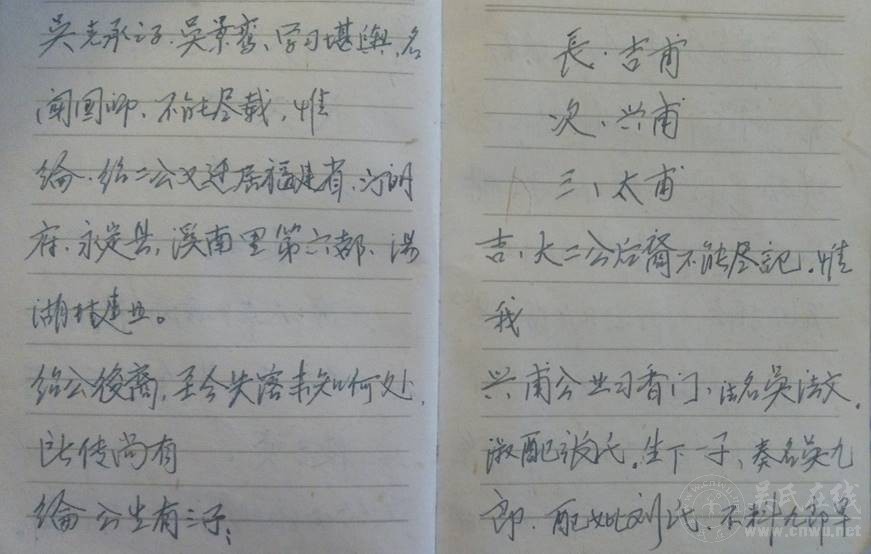 吴克承之子.吴景鸾、学习堪舆,名
闻国师、不能尽载,惟
纶.绍二公又迁居福建省,汀州
府.永定县,溪南里第六都、汤
湖村建业。
绍公後裔,至今失落未知何处,
传尚有
纶公生有三子;
長.吉甫
次、兴甫
三、太甫
吉、大二公后裔不能尽記.惟
我
兴甫公业习香门、法名吴法文.
淑配张氏.生下一子、奏名吴九
郎.配妣刘氏、不料九郎早
吴氏在线
www.cnwu.net